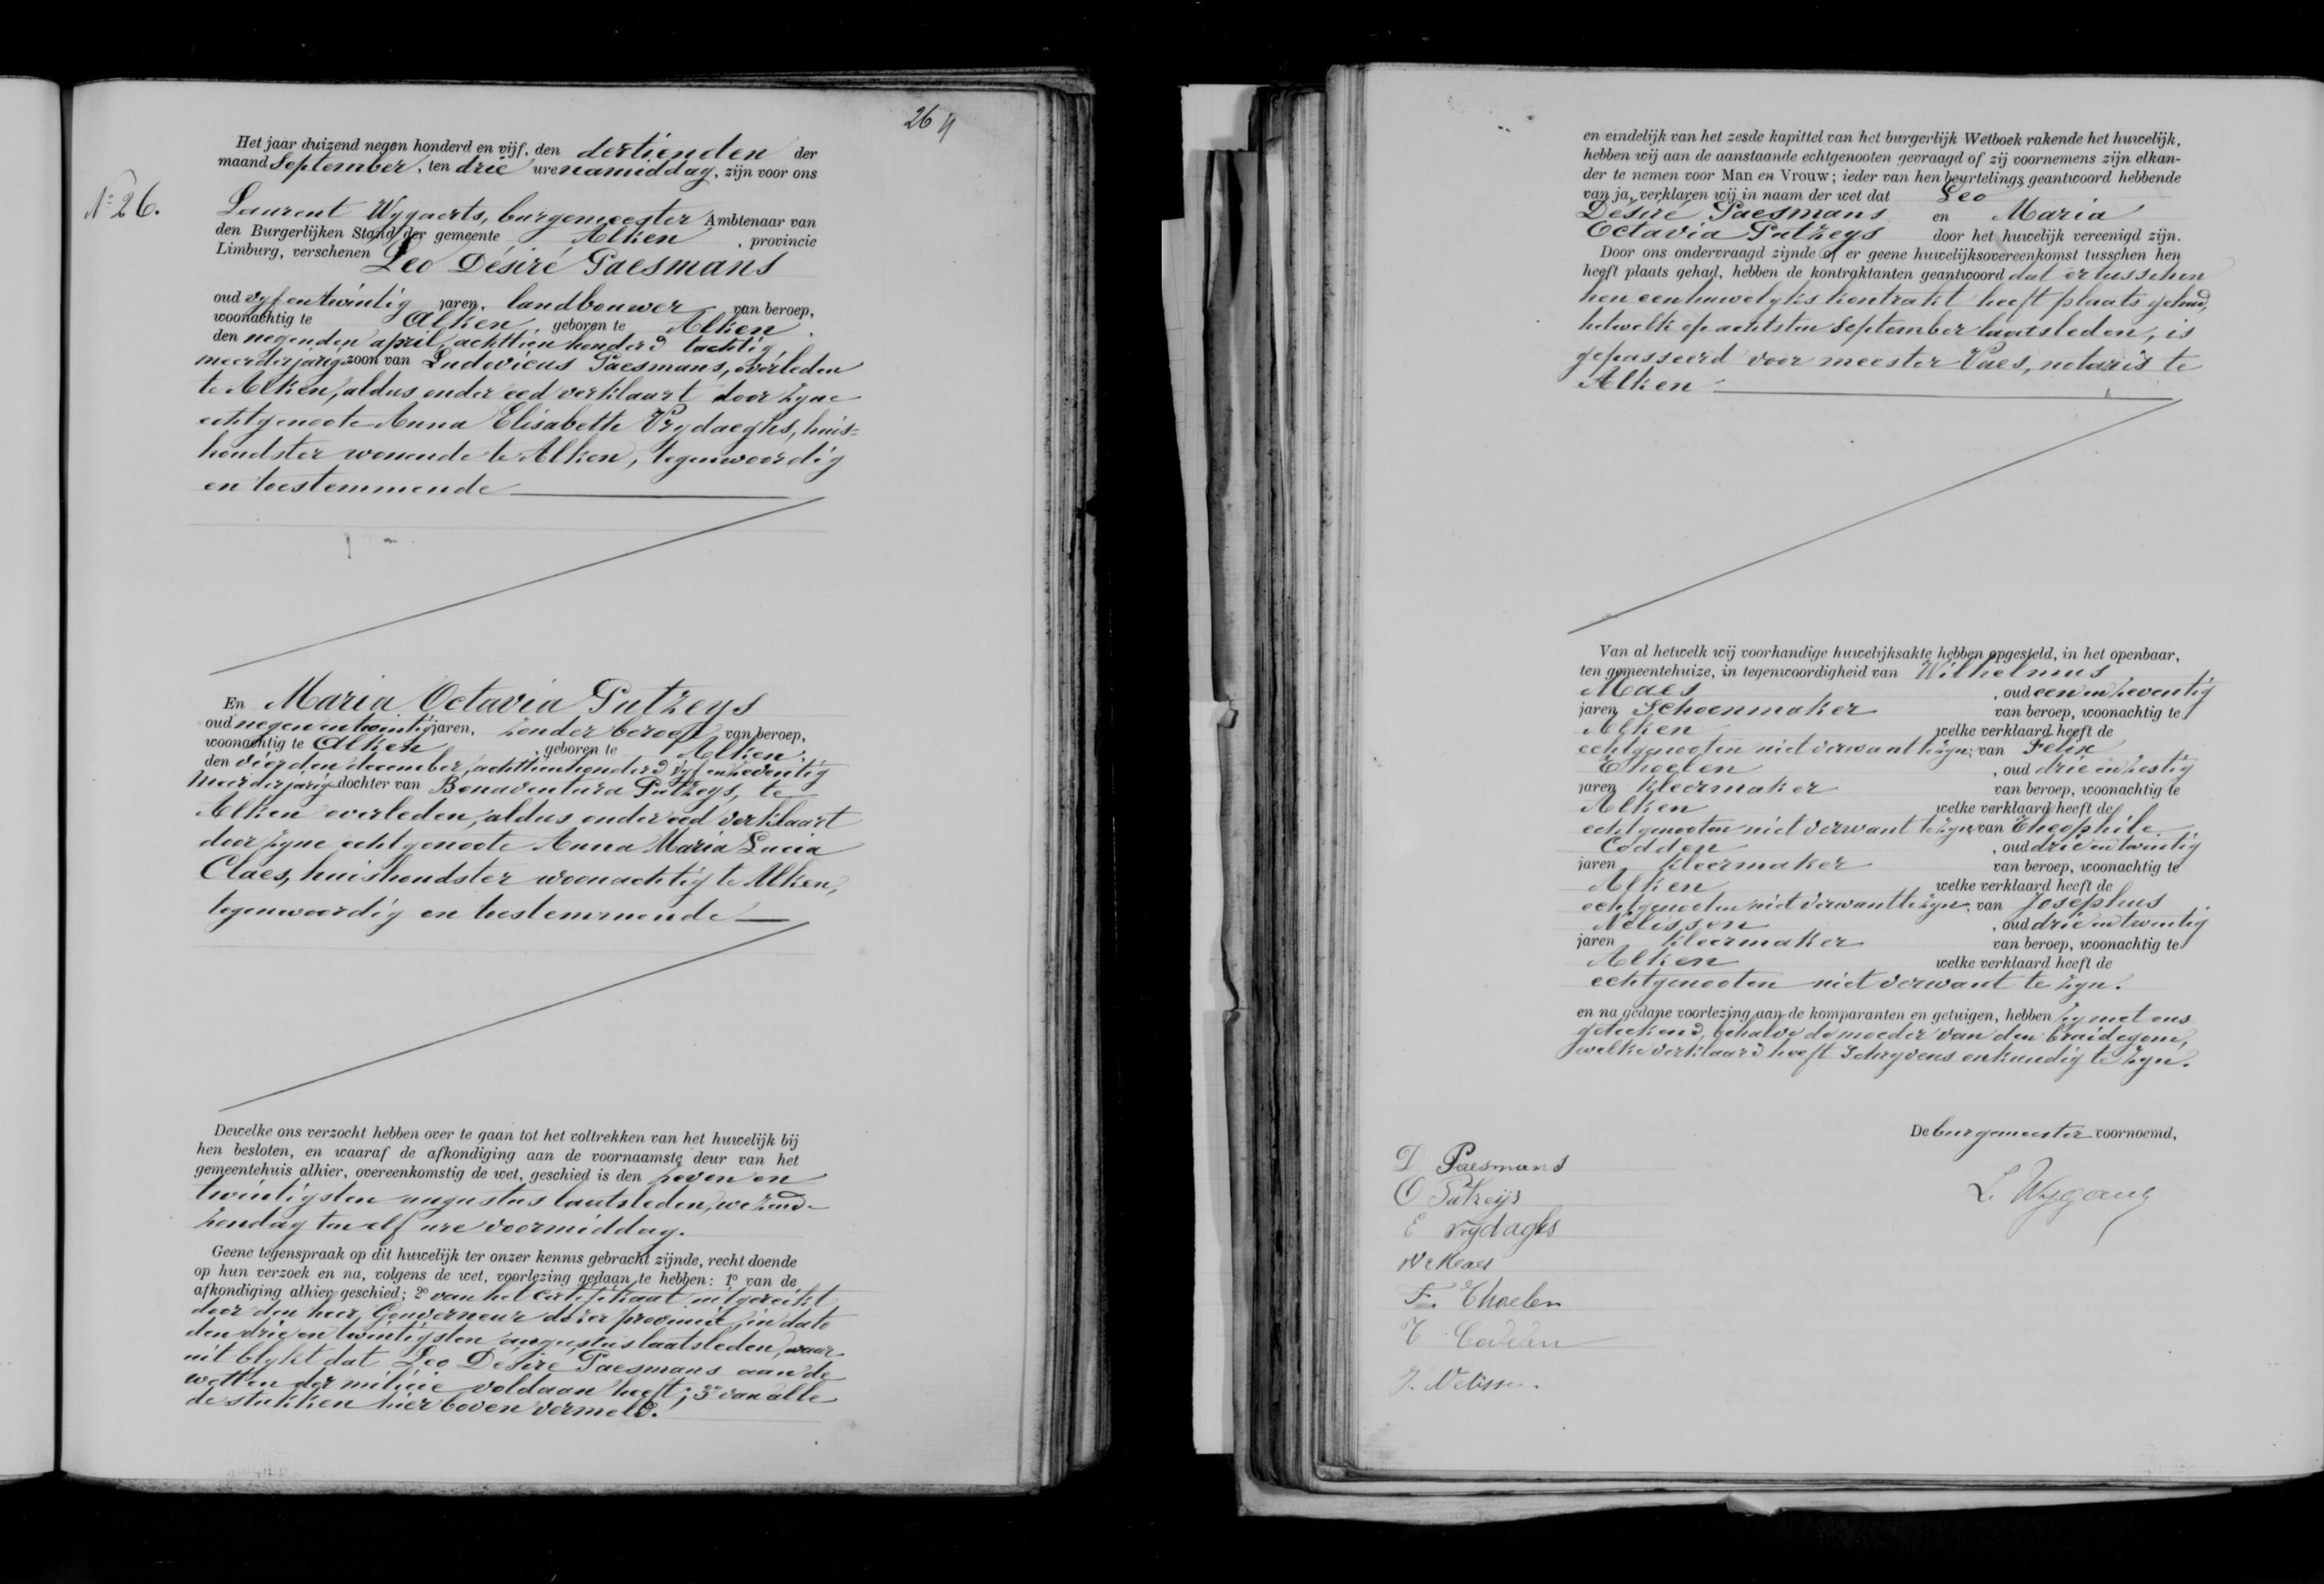 26
N° 26.
Het jaar duizend negen honderd en vijf, den dertienden der
maand September, ten drie ure namiddag, zijn voor ons
Laurent Wygaerts, burgemeester Ambtenaar van
den Burgerlijken Stand der gemeente Alken, provincie
Limburg, verschenen Leo Désiré Paesmans
oud vyf en twintig jaren, landbouwer van beroep,
woonachtig te Alken geboren te Alken,
den negenden april, achttien honderd tachtig
meerderjarig zoon van Ludovicus Paesmans, overleden
te Alken, aldus onder eed verklaart door zyne
echtgenoote Anna Elisabeth Vrydaeghs, huis=
houdster wonende te Alken, tegenwoordig
en toestemmende
En Maria Octavia Putzeys
oud negen en twintig jaren, zonder beroep van beroep,
woonachtig te Alken, geboren te Alken,
den vierden december, achttienhonderd vyf en zeventig
meerderjarig dochter van Bonaventura Putzeys, te
Alken overleden, aldus onder eed verklaart
door zyne echtgenoote Anna Maria Lucia
Claes, huishoudster woonachtig te Alken,
tegenwoordig en toestemmende
Dewelke ons verzocht hebben over te gaan tot het voltrekken van het huwelijk bij
hen besloten, en waaraf de afkondiging aan de voornaamste deur van het
gemeentehuis alhier, overeenkomstig de wet, geschied is den zeven en
twintigsten augustus laatsleden, wezende
zondag ten elf ure voormiddag.
Geene tegenspraak op dit huwelijk ter onzer kennis gebracht zijnde, recht doende
op hun verzoek en na, volgens de wet, voorlezing gedaan te hebben: 1° van de
afkondiging alhier geschied; 2° van het certifikaat uitgereikt
door den heer Gouverneur dezer provincie, in date
den drie en twintigsten augustus laatsleden, waar
uit blykt dat Leo Desiré Paesmans aan de
wetten der milicie voldaan heeft; 3° van alle
de stukken hier boven vermeld.
en eindelijk van het zesde kapittel van het burgerlijk Wetboek rakende het huwelijk,
hebben wij aan de aanstaande echtgenooten gevraagd of zij voornemens zijn elkan-
der te nemen voor Man en Vrouw; ieder van hen beurtelings geantwoord hebbende
van ja, verklaren wij in naam der wet dat Leo
Désiré Paesmans en Maria
Octavia Putzeys door het huwelijk vereenigd zijn.
Door ons ondervraagd zijnde of er geene huwelijksovereenkomst tusschen hen
heeft plaats gehad, hebben de kontraktanten geantwoord dat er tusschen
hen een huwelyks kontrakt heeft plaats gehad,
hetwelk op achtsten September laatsleden, is
gepasseerd voor meester Vaes, notaris te
Alken
Van al hetwelk wij voorhandige huwelijksakte hebben opgesteld, in het openbaar,
ten gemeentehuize, in tegenwoordigheid van Wilhelmus
Maes, oud een en zeventig
jaren Schoenmaker van beroep, woonachtig te
Alken welke verklaard heeft de
echtgenooten niet verwant te zyn; van Felix
Thoelen, oud drie en zestig
jaren kleermaker van beroep, woonachtig te
Alken welke verklaard heeft de
echtgenooten niet verwant te zyn; van Theophile
Codden, oud drie en twintig
jaren kleermaker van beroep, woonachtig te
Alken welke verklaard heeft de
echtgenooten niet verwant te zyn; van Josephus
Nelissen, oud drie en twentig
jaren kleermaker van beroep, woonachtig te
Alken welke verklaard heeft de
echtgenooten niet verwant te zyn.
en na gedane voorlezing aan de komparanten en getuigen, hebben zy met ons
geteekend, behalve de moeder van den bruidegom,
welke verklaard heeft Schryvens onkundig te zyn.
De burgemeester voornoemd,
D Paesmans
O Putzeijs
E vrydaghs
W Maes
F. Thoelen
T Codden
J. Nelissen.